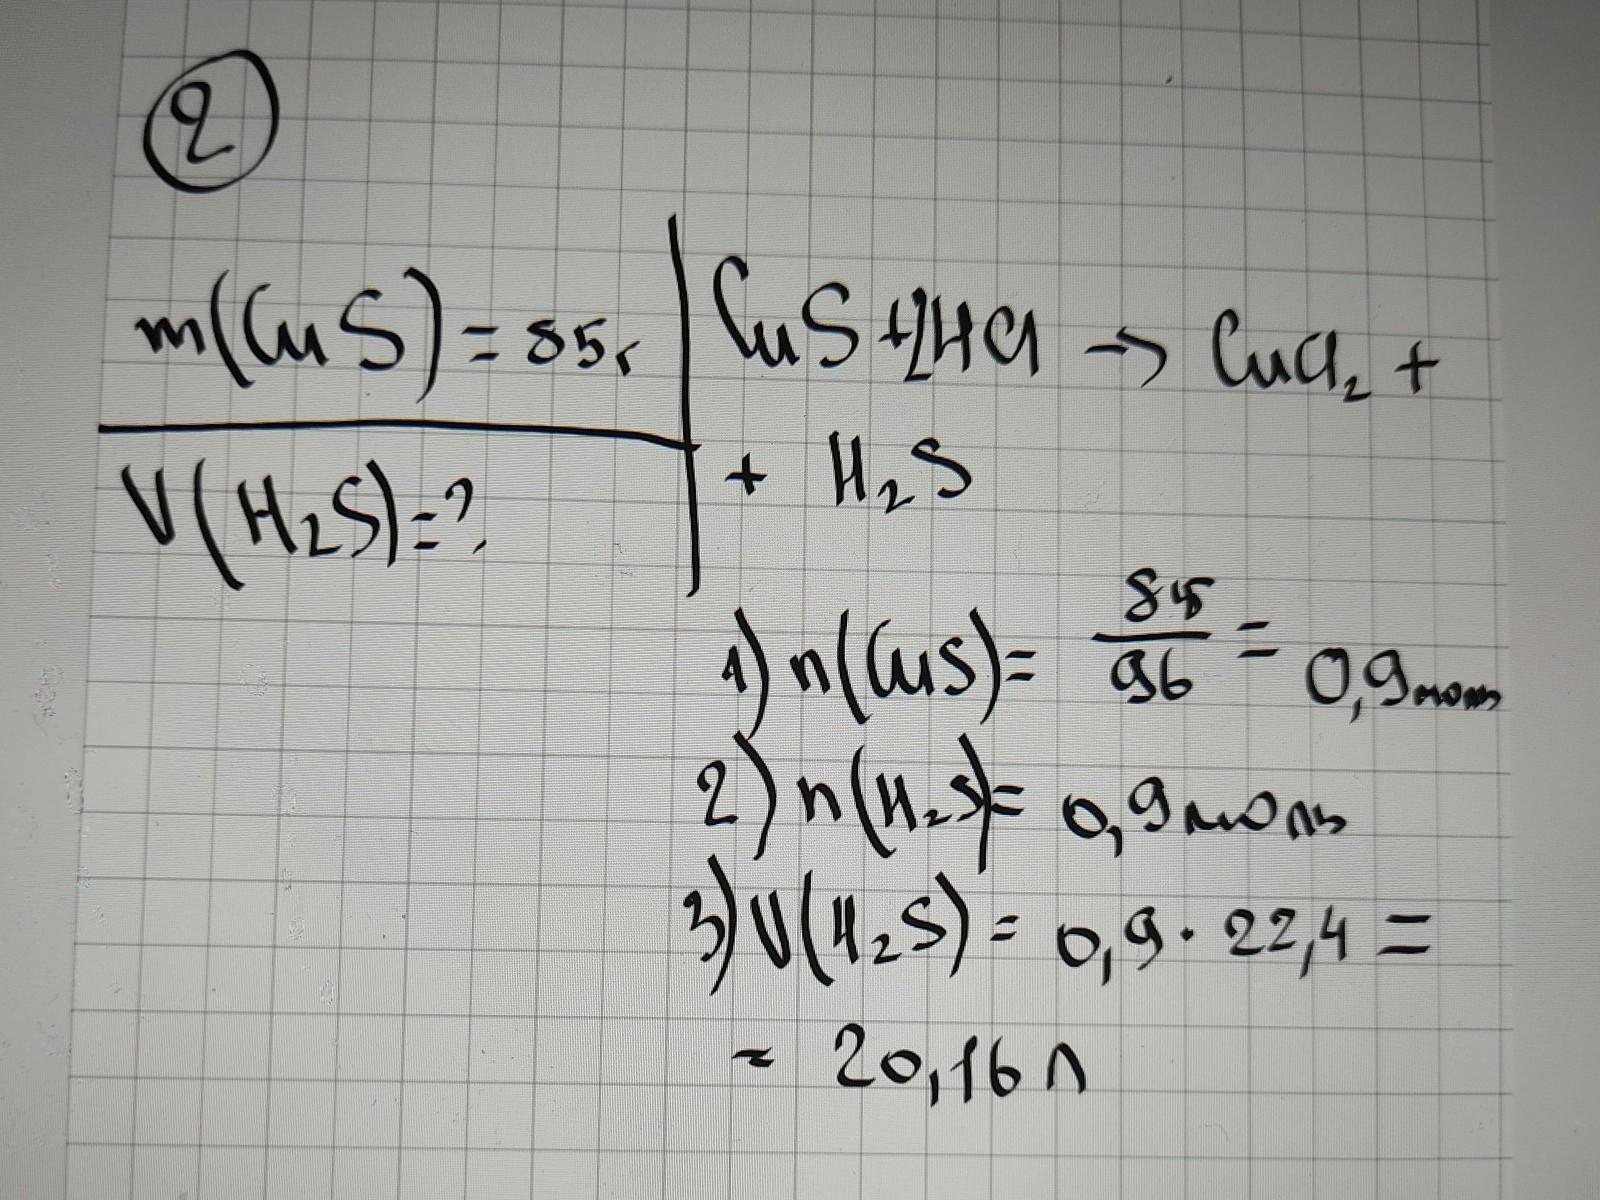 2
m(CuS) = 85г
V(H₂S) = ?
CuS + 2HCl → CuCl₂ +
+ H₂S
1) n(CuS) = 85/96 = 0,9 моль
2) n(H₂S) = 0,9 моль
3) V(H₂S) = 0,9 · 22,4 =
= 20,16 л